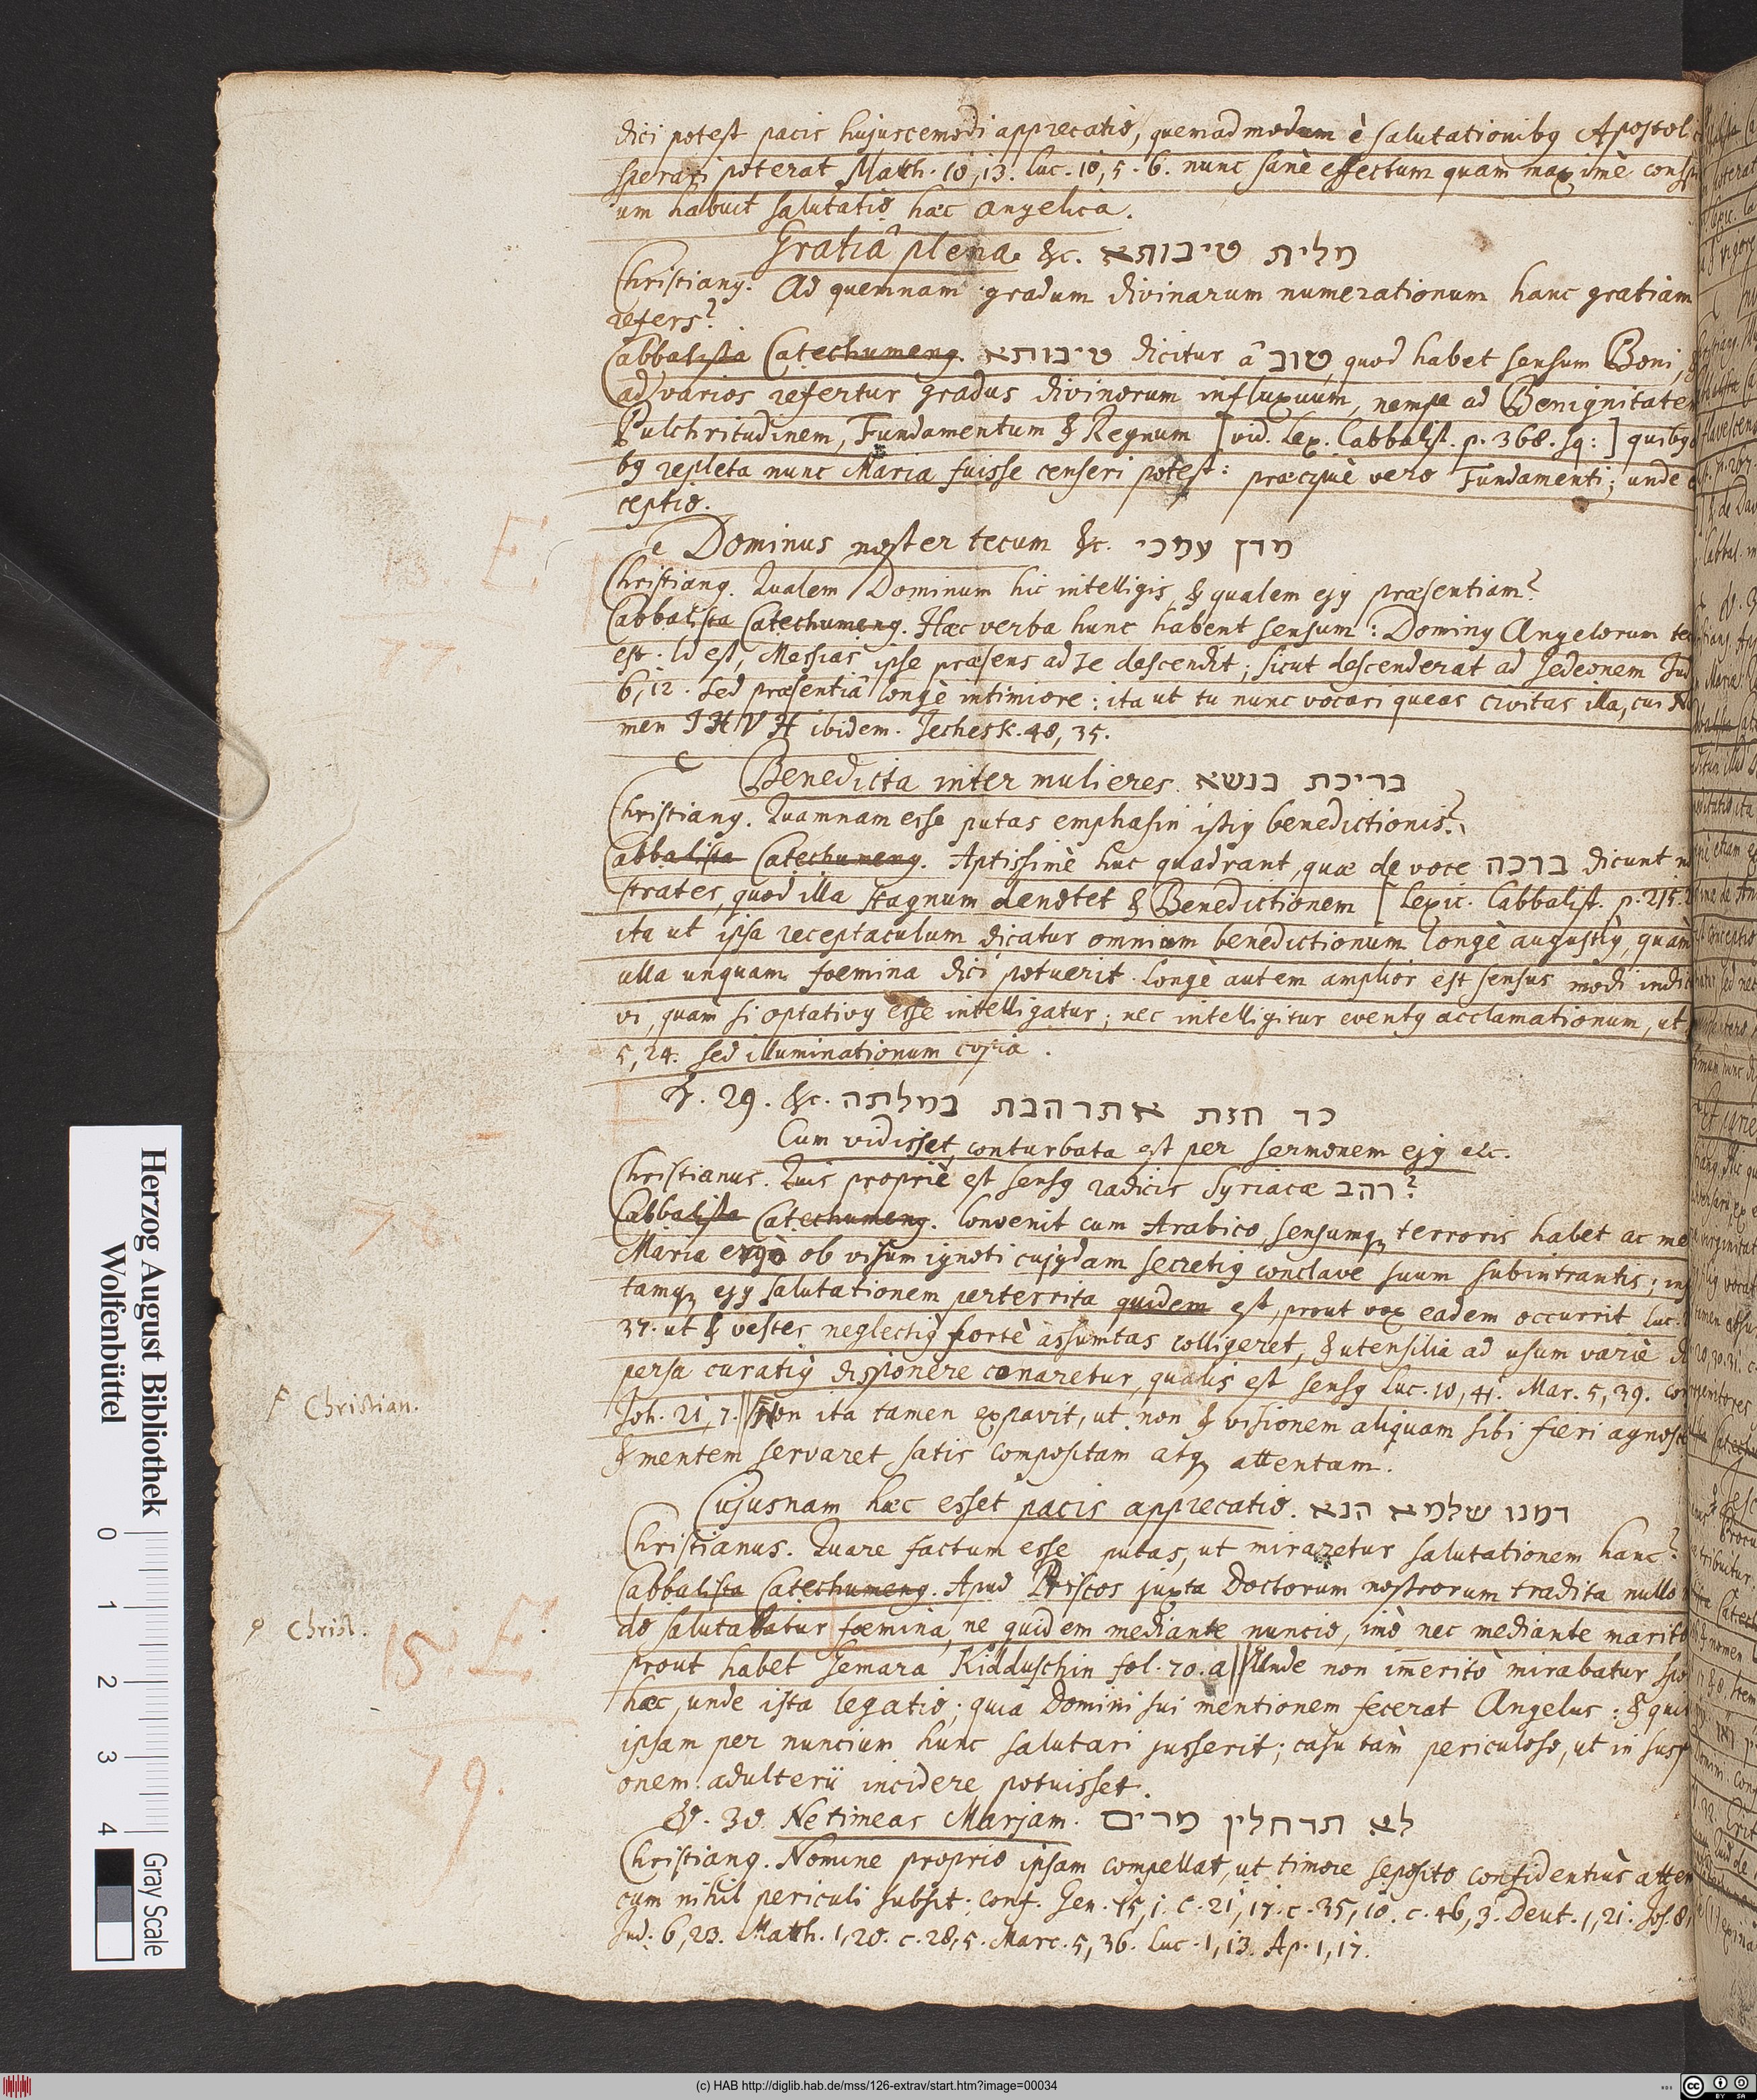 dici potest pacis hujuscemodi apprecatio, quemadmodum è salutationibꝰ Apostol
sperari poterat Matth. 10, 13. Luc. 10, 5. 6. nunc sanè effectum quàm maximè consp
um habuit salutatio hæc angelica.
Gratiâ plena &c. מלית טיבותא
Christianꝰ. Ad quemnam gradum divinarum numerationum hanc gratiam
refers?
Cabbalista Catechumenꝰ. טיבותא dicitur â טוב, quod habet sensum Boni,
ad varios refertur gradus divinorum influxuum, nempe ad Benignitatem
Pulchritudinem, Fundamentum & Regnum [vid. Lex. Cabbalist. p. 368. sq:] quibꝰ
bꝰ repleta nunc Maria fuisse censeri potest: præcipuè vero Fundamenti; unde
ceptio.
Dominus noster tecum &c. מרן עמכי
Christianꝰ. Qualem Dominum hic intelligis, & qualem ejꝰ præsentiam?
Cabbalista Catechumenꝰ. Hæc verba hunc habent sensum: Dominꝰ Angelorum te
est. Id est, Messias ipse præsens ad te descendit; sicut descenderat ad Gedeonem Jud
6, 12. Sed præsentiâ longè intimiore: ita ut tu nunc vocari queas civitas illa, cui No
men IHVH ibidem. Jechesk. 48, 35.
Benedicta inter mulieres. בריכת בנשא
Christianꝰ. Quamnam esse putas emphasin istiꝰ benedictionis?
Cabbalista Catechumenꝰ. Aptissimè huc quadrant, quæ de voce ברכה dicunt no
strates, quod illa stagnum denotet & Benedictionem [Lexic. Cabbalist. p. 215.
ita ut ipsa receptaculum dicatur omnium benedictionum longè augustiꝰ, quàm
ulla unquam foemina dici potuerit. Longè autem amplior est sensus modi indic
vi, quàm si optativꝰ esse intelligatur; nec intelligitur eventꝰ acclamationum, ut
5, 24. sed illuminationum copia.
V. 29. &c. כד חזת אתרהבת במלתה
Cum vidisset, conturbata est per sermonem ejꝰ etc.
Christianus. Quis propriè est sensꝰ radicis Syriacæ רהב?
Cabbalista Catechumenꝰ. Convenit cum Arabico, sensumq; terroris habet ac me
Maria ergò ob visum ignoti cujꝰdam secretiꝰ conclave suum subintrantis; in
tamq; ejꝰ salutationem perterrita quidem est, prout vox eadem occurrit Luc.
37. ut & vestes neglectiꝰ fortè assumtas colligeret, & utensilia ad usum variè di
persa curatiꝰ disponere conaretur, qualis est sensꝰ Luc. 10, 41. Mar. 5, 39. con
Joh. 21, 7. || Non ita tamen expavit, ut non & visionem aliquam sibi fieri agnosce
& mentem servaret satis compositam atq; attentam.
Cujusnam hæc esset pacis apprecatio. דמנו שלמא הנא
Christianus. Quare factum esse putas, ut miraretur salutationem hanc?
Cabbalista Catechumenꝰ. Apud Priscos juxta Doctorum nostrorum tradita nullo
do salutabatur foemina, ne quidem mediante nuncio, imò nec mediante marito
prout habet Gemara Kidduschin fol. 70. a || Unde non im̅eritò mirabatur spo
hæc, unde ista legatio; quia Domini sui mentionem fecerat Angelus: & qui
ipsam per nuncium hunc salutari jusserit; casu tàm periculoso, ut in susp
onem adulterii incidere potuisset.
V. 30. Ne timeas Marjam. לא תדחלין מרים
Christianꝰ. Nomine proprio ipsam compellat, ut timore seposito confidentiùs atten
cum nihil periculi subsit: conf. Gen. 15, 1. c. 21, 17. c. 35, 10. c. 46, 3. Deut. 1, 21. Jos. 8,
Jud. 6, 23. Matth. 1, 20. c. 28, 5. Marc. 5, 36. Luc. 1, 13. Ap. 1, 17.
77.
78.
Christian.
Christ.
15. E.
79.
Herzog August Bibliothek
Wolfenbüttel
0 1 2 3 4
Gray Scale
(c) HAB http://diglib.hab.de/mss/126-extrav/start.htm?image=00034
CC BY SA